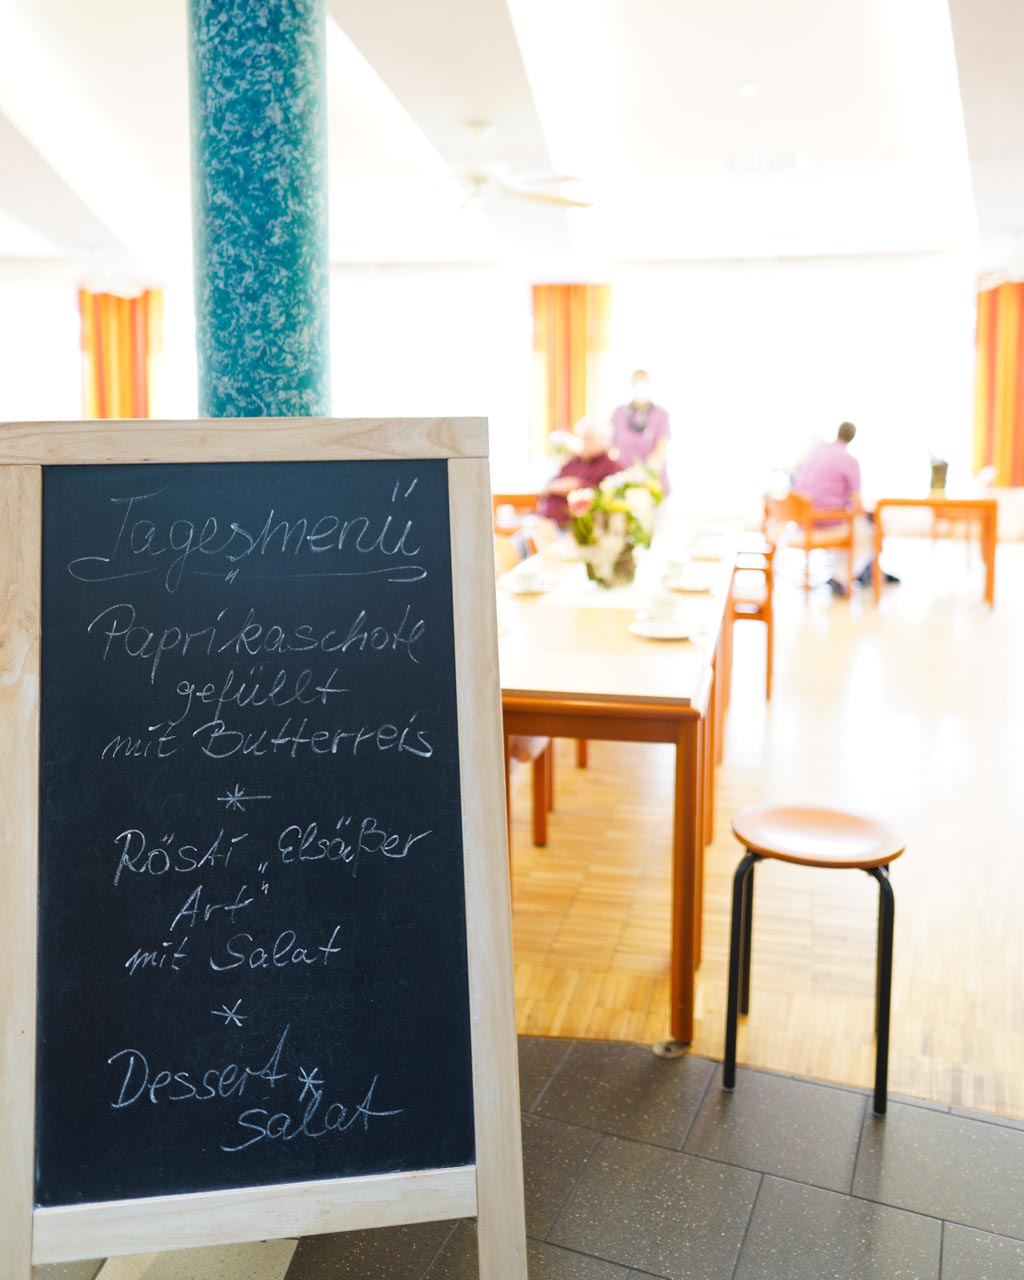 Tagesmenü
Paprikaschote
gefüllt
mit Butterreis
*
Rösti „Elsäßer
Art"
mit Salat
*
Dessert *
Salat